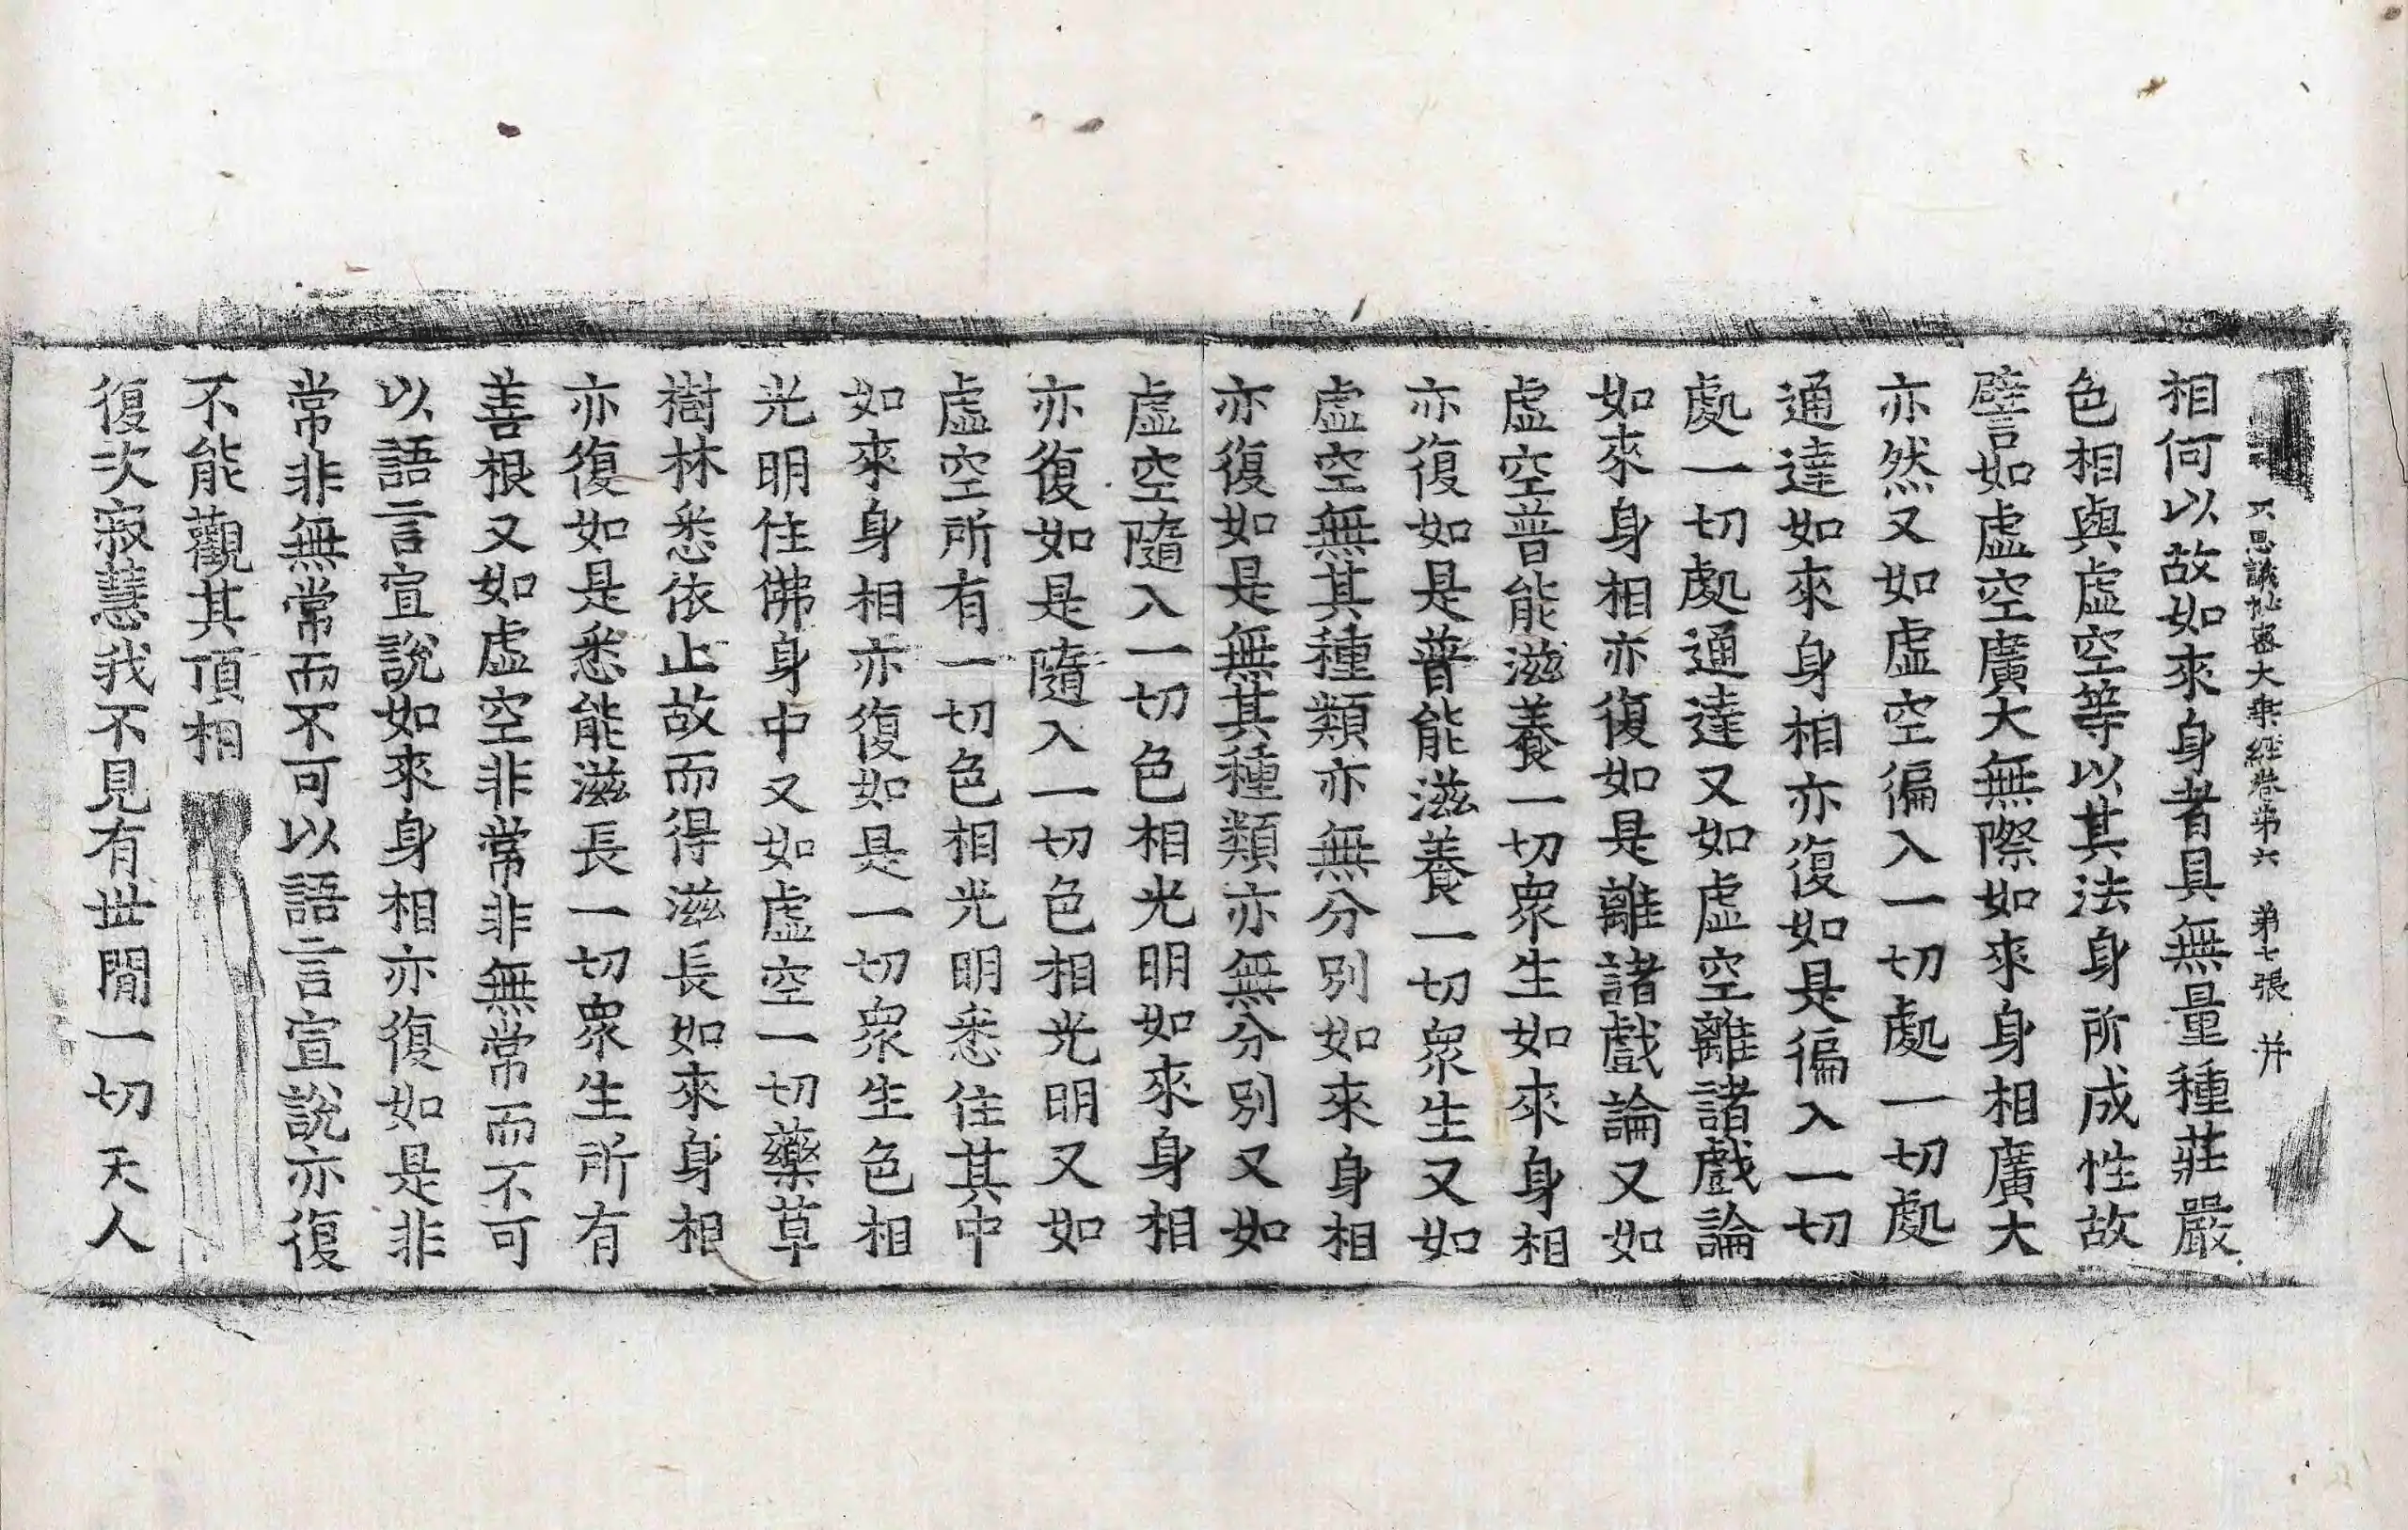 不思議秘密大乘經卷第六 第七張 并
相何以故如來身者具無量種莊嚴
色相與虛空等以其法身所成性故
譬如虛空廣大無際如來身相廣大
亦然又如虛空徧入一切處一切處
通達如來身相亦復如是徧入一切
處一切處通達又如虛空離諸戲論
如來身相亦復如是離諸戲論又如
虛空普能滋養一切衆生如來身相
亦復如是普能滋養一切衆生又如
虛空無其種類亦無分別如來身相
亦復如是無其種類亦無分別又如
虛空隨入一切色相光明如來身相
亦復如是隨入一切色相光明又如
虛空所有一切色相光明悉住其中
如來身相亦復如是一切衆生色相
光明住佛身中又如虛空一切藥草
樹林悉依止故而得滋長如來身相
亦復如是悉能滋長一切衆生所有
善根又如虛空非常非無常而不可
以語言宣說如來身相亦復如是非
常非無常而不可以語言宣說亦復
不能觀其頂相
復次寂慧我不見有世間一切天人